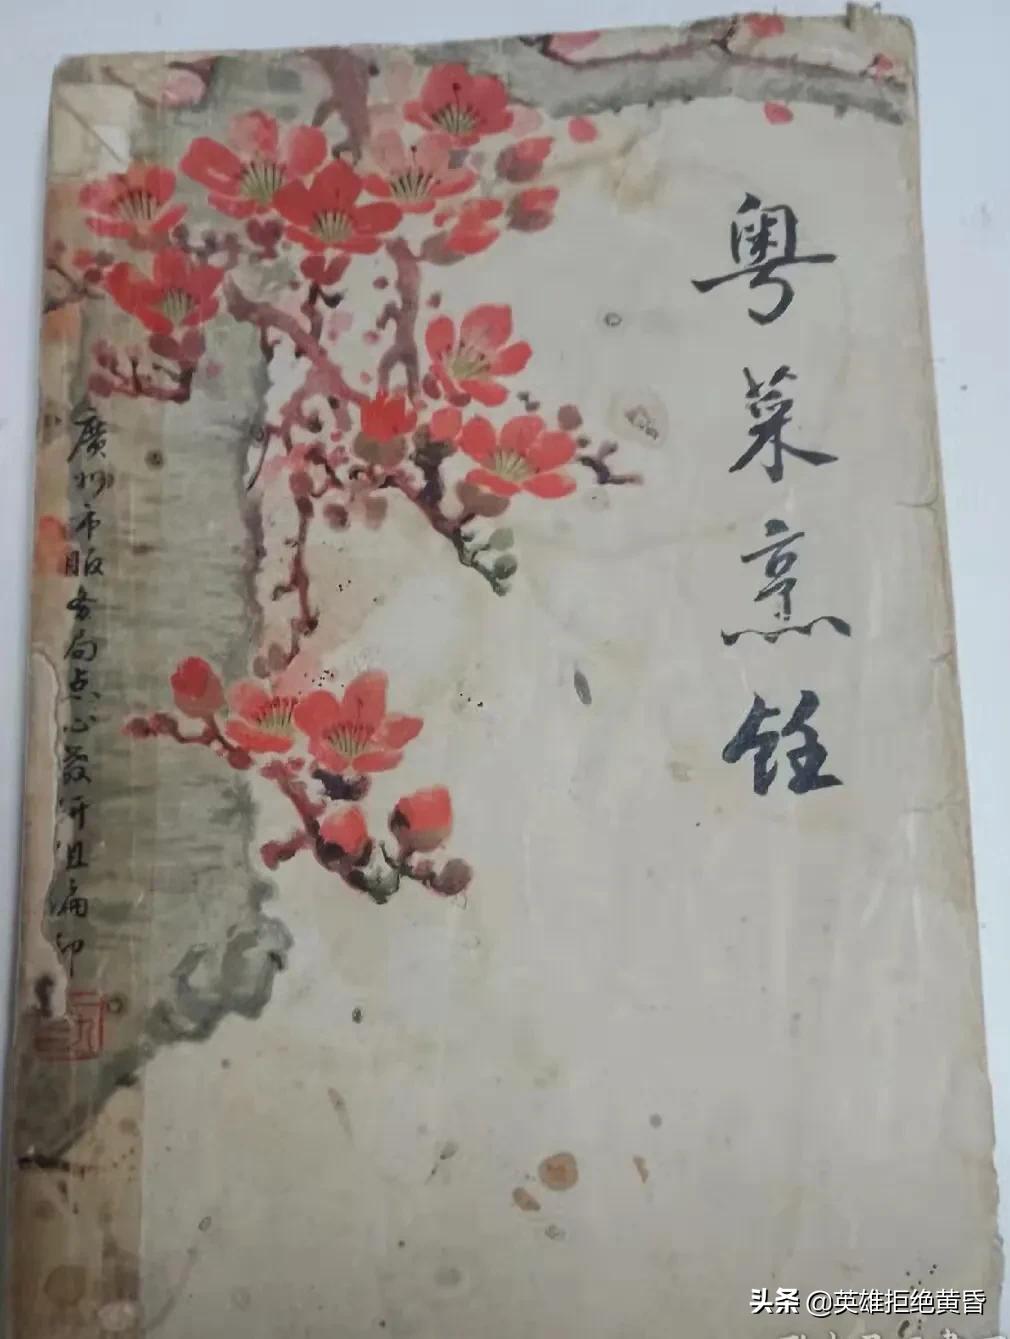 粤菜烹饪
廣州市服务局点心教研组编印
头条 @英雄拒绝黄昏